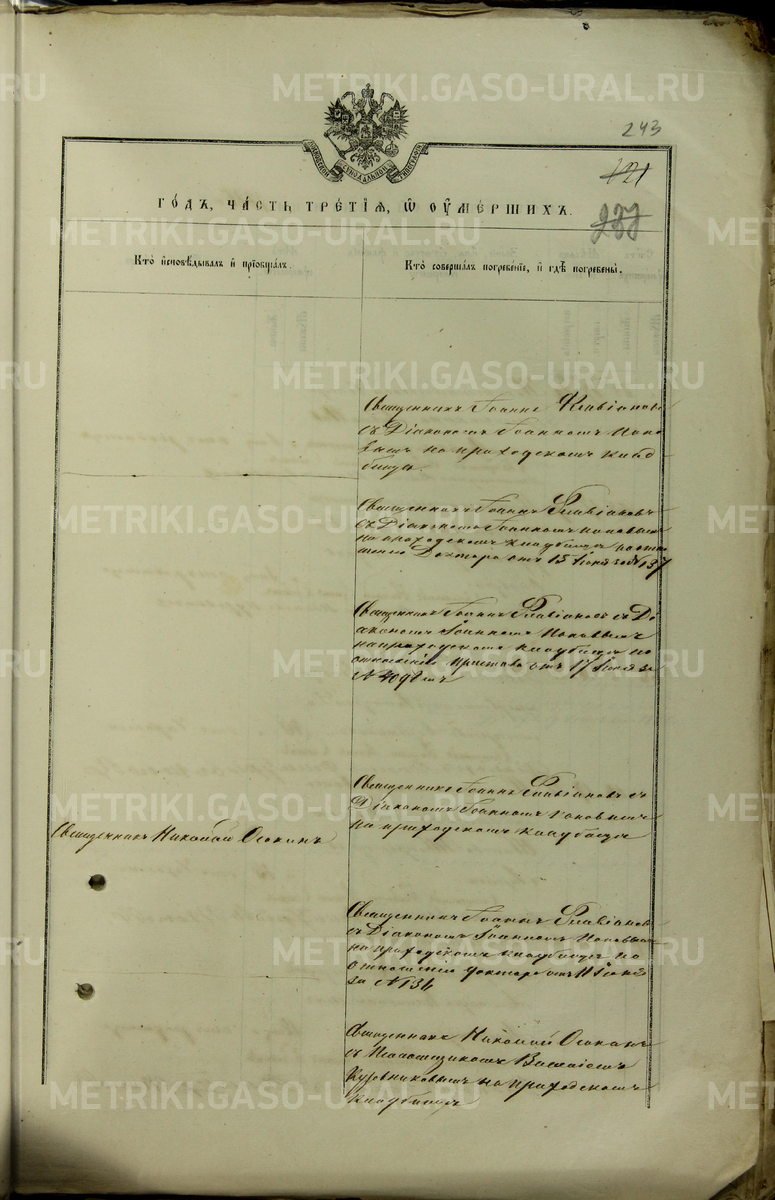 METRIKI.GASO-URAL.RU
243
121
237
Годъ, часть третія, ѡ оумершихъ.
Кто исповѣдывалъ и пріобщалъ.
Кто совершалъ погребеніе, и гдѣ погребены.
Священникъ Іоаннъ Флавіановъ
съ Діакономъ Іоанномъ Попо
вымъ на приходскомъ клад
бищѣ.
Священникъ Іоаннъ Флавіановъ
съ Діакономъ Іоанномъ Поповымъ
на приходскомъ кладбищѣ по отно
шенію Доктора отъ 15 Іюня за № 137
Священникъ Іоаннъ Флавіановъ съ Ді
акономъ Іоанномъ Поповымъ
на приходскомъ кладбищѣ по
отношенію Пристава отъ 17 Іюня за
№
Священникъ Іоаннъ Флавіановъ съ
Діакономъ Іоанномъ Поповымъ
на приходскомъ кладбищѣ
Священникъ Николай Осокинъ
Священникъ Іоаннъ Флавіановъ
съ Діакономъ Іоанномъ Поповымъ
на приходскомъ кладбищѣ по
отношенію доктора отъ 11 Іюня
за № 134
Священникъ Николай Осокинъ
съ Псаломщикомъ
на приходскомъ
кладбищѣ